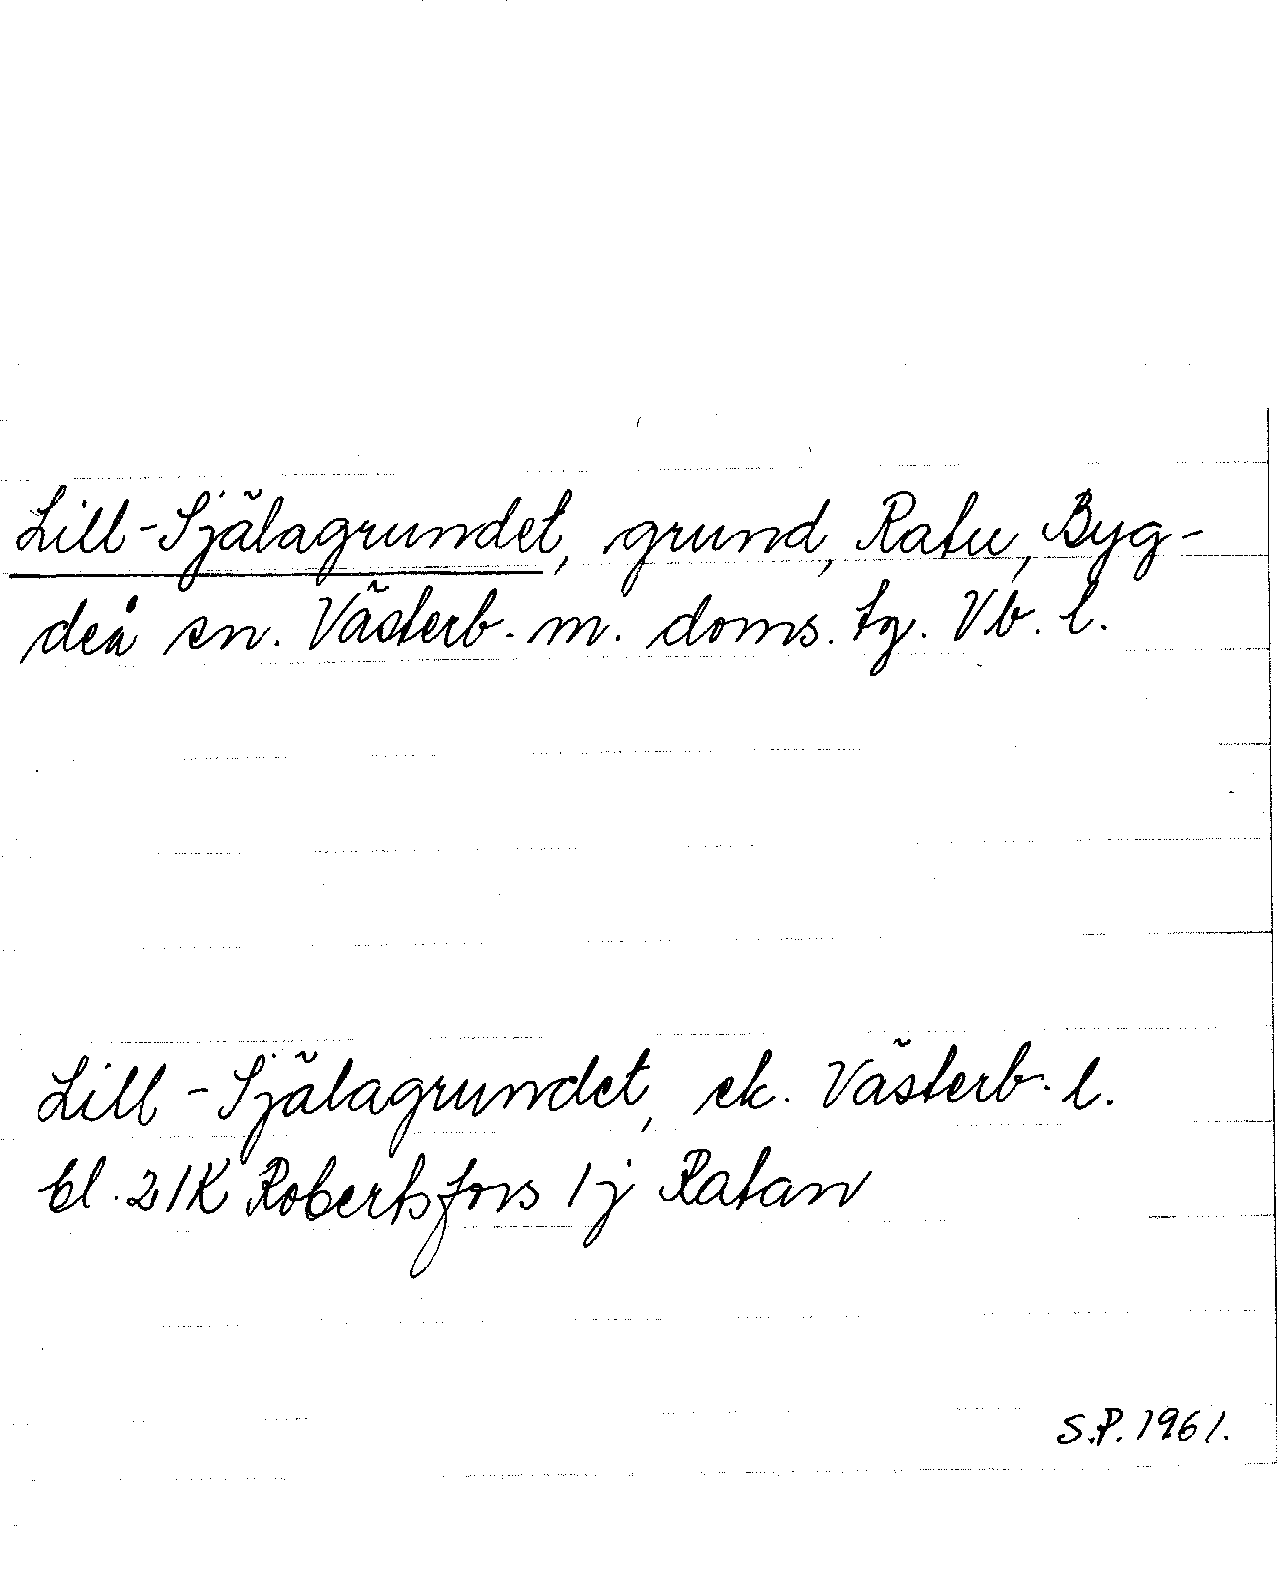 Lill-Själagrundet, grund, Ratu, Byg-
deå sn. Västerb. m. doms. tg. Vb. l.
Lill-Själagrundet, ek. Västerb. l.
bl. 21K Robertsfors 1j Ratan
S.P. 1961.